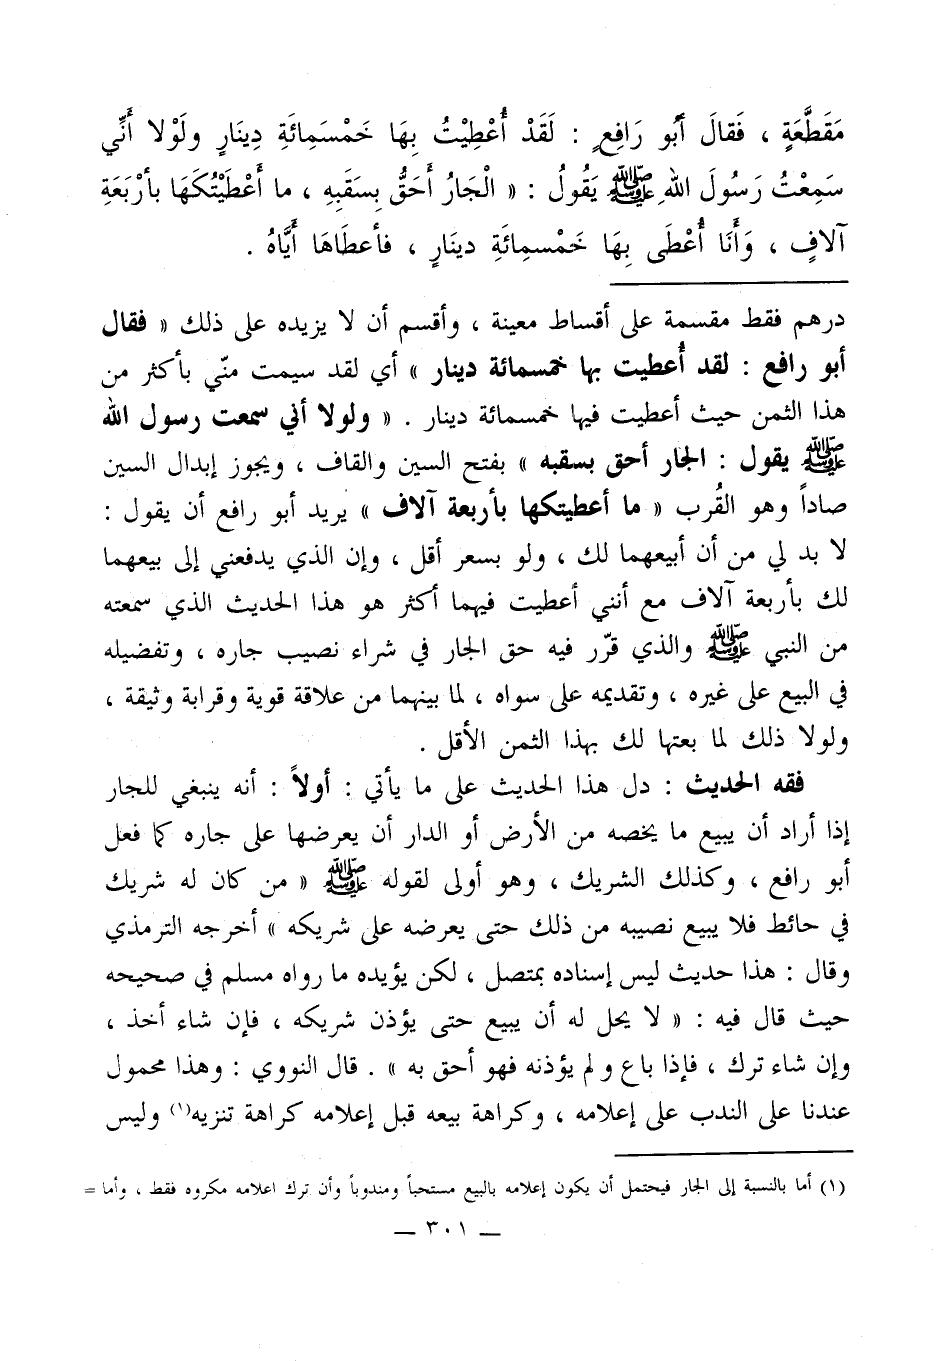 مَقَطَّعَةٍ ، فَقالَ أَبُو رَافِعٍ : لَقَدْ أُعْطِيْتُ بِهَا خَمْسَمِائَةِ دِينَارٍ ولَوْلا أَنِّي
سَمِعْتُ رَسُولَ اللهِ ﷺ يَقُولُ : « الْجَارُ أَحَقُّ بِسَقَبِهِ ، ما أَعْطَيْتُكَهَا بأرْبَعَةِ
آلافٍ ، وَأَنَا أُعْطَى بِهَا خَمْسمِائَةِ دينَارٍ ، فأعطَاهَا أَيَّاهُ .
درهم فقط مقسمة على أقساط معينة ، وأقسم أن لا يزيده على ذلك « فقال
أبو رافع : لقد أُعطيت بها خمسمائة دينار » أي لقد سيمت منّي بأكثر من
هذا الثمن حيث أعطيت فيها خمسمائة دينار . « ولولا أني سمعت رسول الله
ﷺ يقول : الجار أحق بسقبه » بفتح السين والقاف ، ويجوز إبدال السين
صاداً وهو القُرب « ما أعطيتكها بأربعة آلاف » يريد أبو رافع أن يقول :
لا بد لي من أن أبيعهما لك ، ولو بسعر أقل ، وإن الذي يدفعني إلى بيعهما
لك بأربعة آلاف مع أنني أعطيت فيهما أكثر هو هذا الحديث الذي سمعته
من النبي ﷺ والذي قرّر فيه حق الجار في شراء نصيب جاره ، وتفضيله
في البيع على غيره ، وتقديمه على سواه ، لما بينهما من علاقة قوية وقرابة وثيقة ،
ولولا ذلك لما بعتها لك بهذا الثمن الأقل .
فقه الحديث : دل هذا الحديث على ما يأتي : أولاً : أنه ينبغي للجار
إذا أراد أن يبيع ما يخصه من الأرض أو الدار أن يعرضها على جاره كما فعل
أبو رافع ، وكذلك الشريك ، وهو أولى لقوله ﷺ « من كان له شريك
في حائط فلا يبيع نصيبه من ذلك حتى يعرضه على شريكه » أخرجه الترمذي
وقال : هذا حديث ليس إسناده بمتصل ، لكن يؤيده ما رواه مسلم في صحيحه
حيث قال فيه : « لا يحل له أن يبيع حتى يؤذن شريكه ، فإن شاء أخذ ،
وإن شاء ترك ، فإذا باع ولم يؤذنه فهو أحق به » . قال النووي : وهذا محمول
عندنا على الندب على إعلامه ، وكراهة بيعه قبل إعلامه كراهة تنزيه(١) وليس
(١) أما بالنسبة إلى الجار فيحتمل أن يكون إعلامه بالبيع مستحباً ومندوباً وأن ترك اعلامه مكروه فقط ، وأما =
— ٣٠١ —